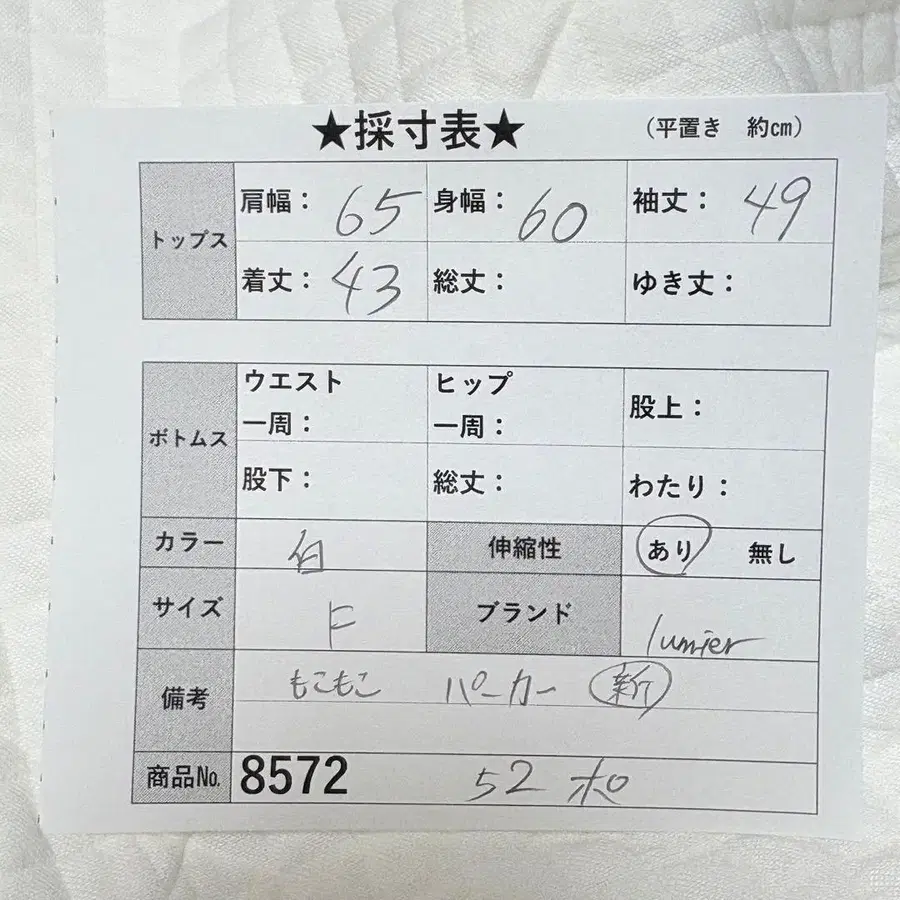 ★採寸表★ (平置き 約cm)
トップス 肩幅: 65 身幅: 60 袖丈: 49
着丈: 43 総丈: ゆき丈:
ボトムス ウエスト一周: ヒップ一周: 股上:
股下: 総丈: わたり:
カラー 白 伸縮性 あり 無し
サイズ F ブランド lumier
備考 もこもこ パーカー 新
商品No. 8572 52 ポ